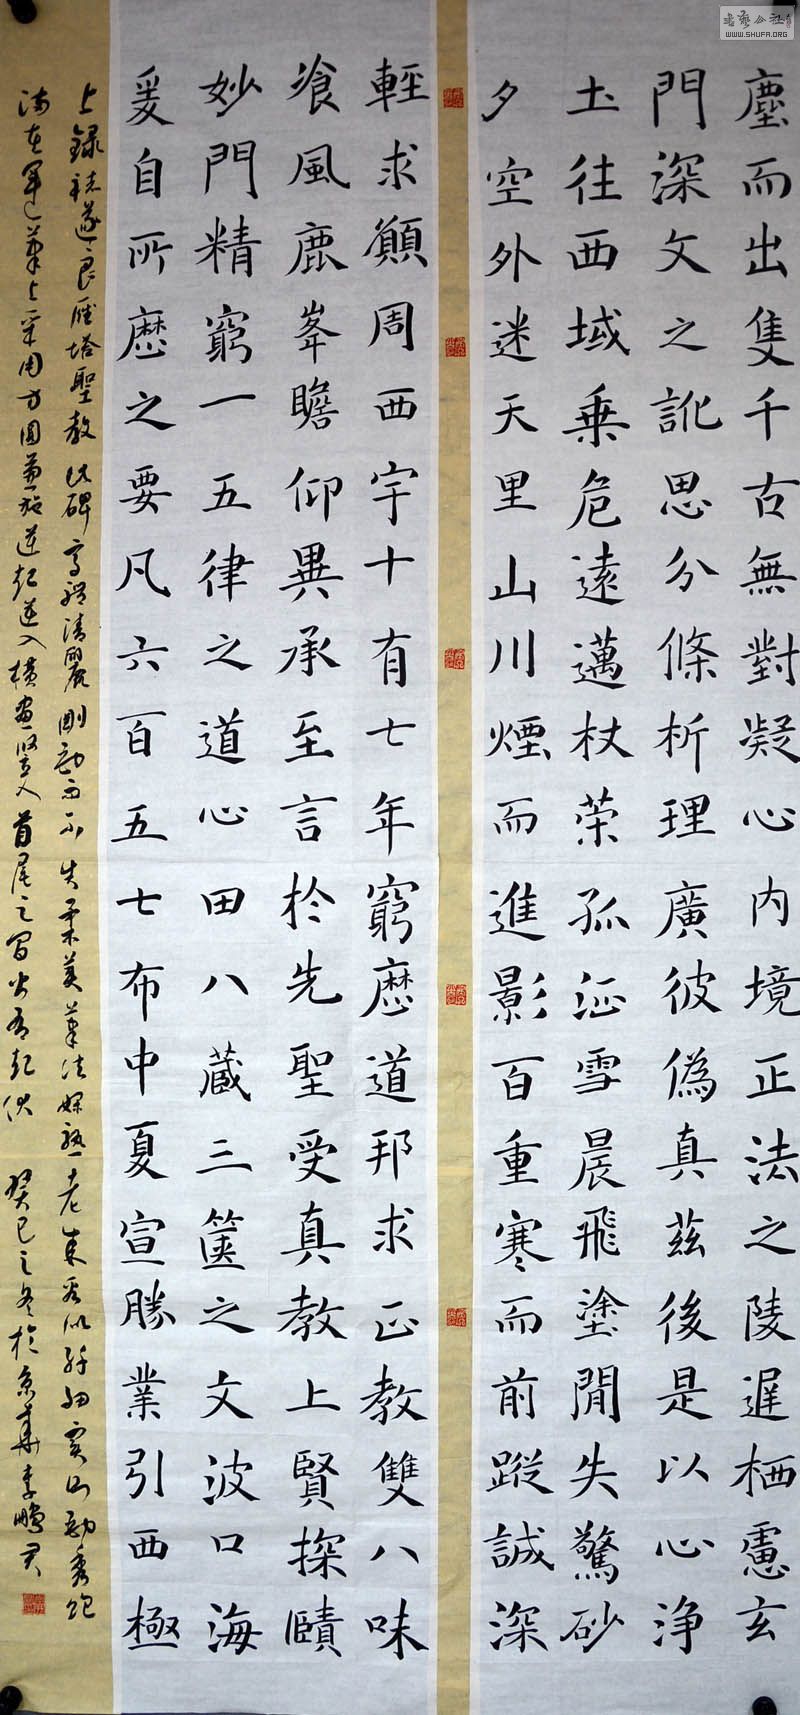 書藝公社
WWW.SHUFA.ORG
塵而出隻千古無對凝心內境正法之陵遲栖慮玄
門深文之訛思分條析理廣彼偽真茲後是以心淨
土往西域乗危遠邁杖策孤征雪晨飛塗閒失驚砂
夕空外迷天里山川煙而進影百重寒而前蹤誠深
輕求願周西宇十有七年窮歷道邦求正教雙八味
飡風鹿峯瞻仰異承至言於先聖受真教上賢探賾
妙門精窮一五律之道心田八藏三篋之文波口海
爰自所歷之要凡六百五七布中夏宣勝業引西極
上錄禇遂良雁塔聖教此碑字體清麗剛勁而不失柔美筆法嫻熟老成看似纖細實則勁秀飽
滿在運筆上采用方圓兼施逆起逆入橫畫豎入首尾之間皆有起伏 癸巳之冬於京華李鵬君